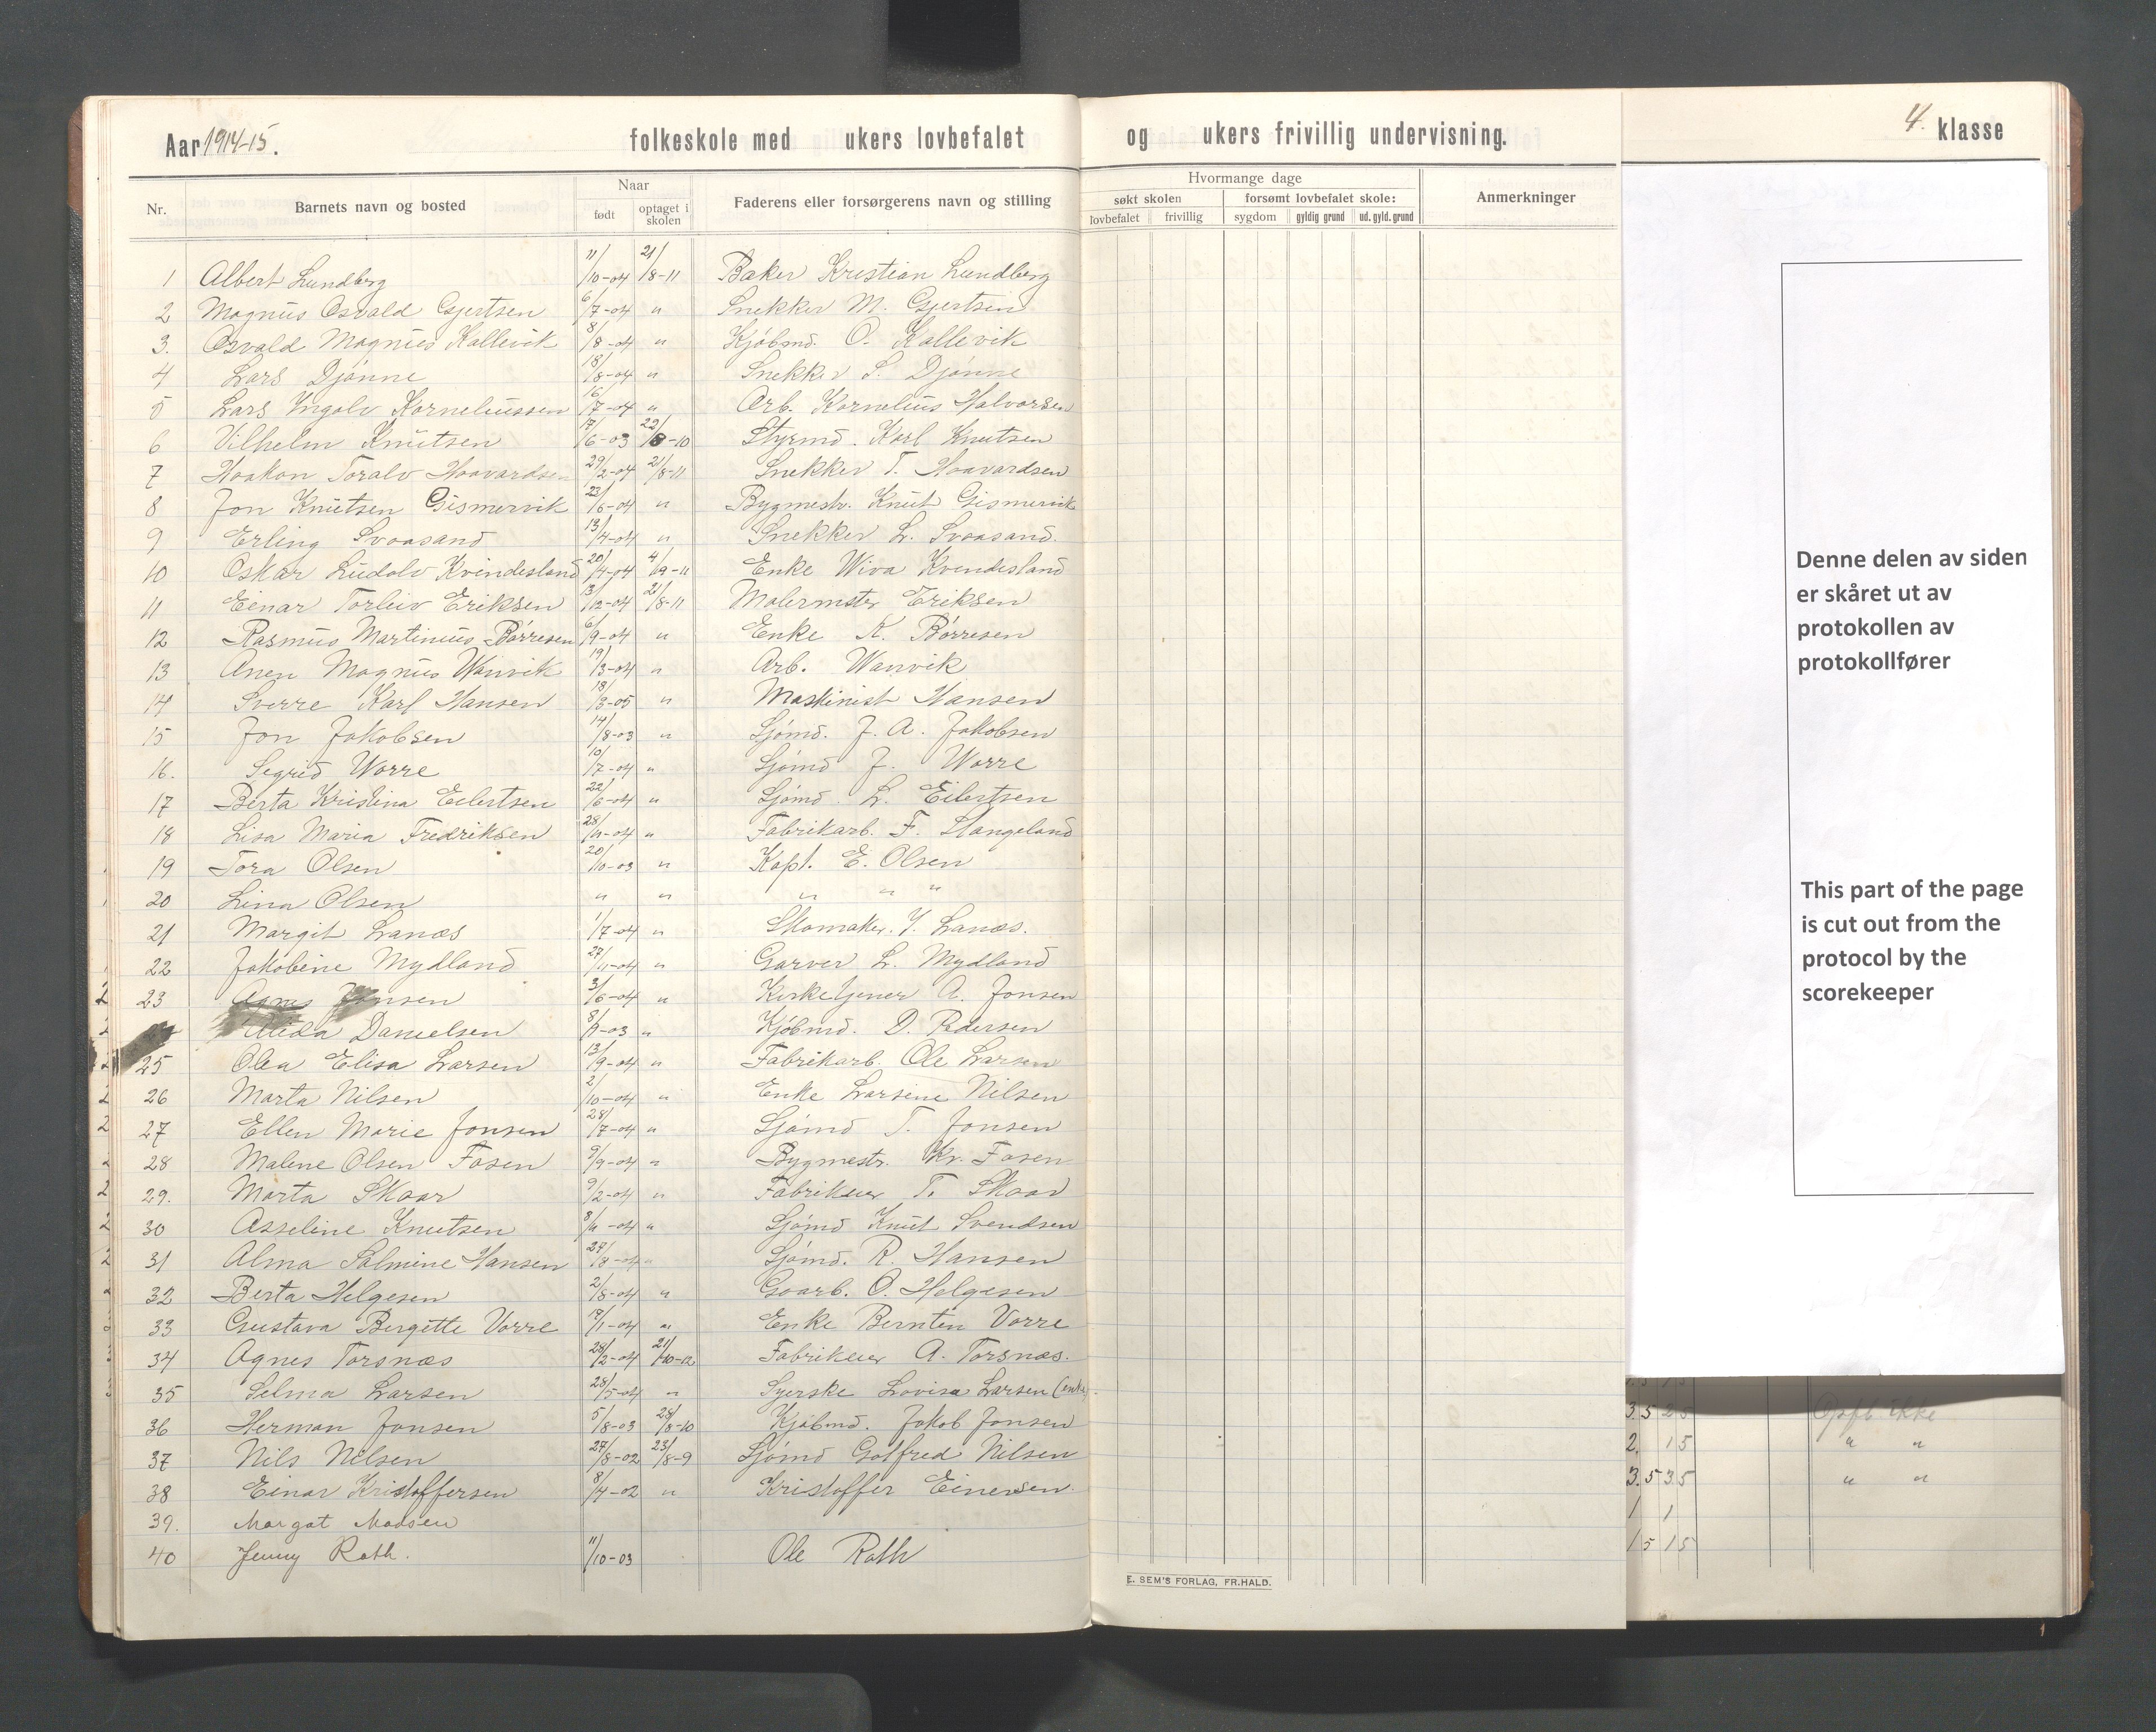 Aar 1914-15. folkeskole med ukers lovbefalet og ukers frivillig undervisning. 4. klasse
Nr. Barnets navn og bosted Naar født optaget i skolen Faderens eller forsørgerens navn og stilling Hvormange dage søkt skolen lovbefalet frivillig forsømt lovbefalet skole: sygdom gyldig grund ud. gyld. grund Anmerkninger
1 Albert Lundberg 11/10-04 21/8-11 Baker Kristian Lundberg
2 Magnus Osvald Gjertsen 6/7-04 " Snekker M. Gjertsen
3. Osvald Magnus Kallevik 8/8-04 " Kjöbmd. O. Kallevik
4 Lars Djönne 18/8-04 " Snekker S. Djönne
5 Lars Yngolv Korneliussen 16/7-04 " Arb. Kornelius Halvorsen
6 Vilhelm Knutsen 17/6-03 22/8-10 Styrmd. Karl Knutsen
7 Haakon Toralv Haavardsen 29/2-04 21/8-11 Snekker T. Haavardsen
8 Jon Knutsen Gismervik 23/6-04 " Bygmestr. Knut Gismervik
9 Erling Svaasand 13/4-04 " Snekker L. Svaasand.
10 Oskar Ludolv Kvindesland 20/4-04 4/9-11 Enke Wiva Kvindesland
11 Einar Torleiv Eriksen 13/12-04 21/8-11 Malermstr Eriksen
12 Rasmus Martinius Börresen 6/9-04 " Enke K. Börresen
13 Anen Magnus Wanvik 19/3-04 " Arb. Wanvik
14 Sverre Karl Hansen 18/3-05 " Maskinist Hansen
15 Jon Jakobsen 14/8-03 " Sjömd. J. A. Jakobsen
16. Segrid Worre 10/7-04 " Sjömd J. Worre
17 Berta Kristina Eilertsen 22/6-04 " Sjömd. L. Eilertsen
18 Lisa Maria Fredriksen 28/11-04 " Fabrikarb. F. Stangeland
19 Tora Olsen 20/10-03 " Kapt. E. Olsen
20 Lina Olsen " " " " "
21 Margit Lanæs 1/7-04 " Skomaker. Y. Lanæs.
22 Jakobine Mydland 27/11-04 " Garver L. Mydland
23 Agnes Jonsen 3/6-04 " Kirketjener A. Jonsen
Alida Danielsen 8/9-03 " Kjöbmd. D. Pedersen
25 Olea Elisa Larsen 13/9-04 " Fabrikarb. Ole Larsen
26 Marta Nilsen 2/10-04 " Enke Larsine Nilsen
27 Ellen Marie Jonsen 28/7-04 " Sjömd T. Jonsen
28 Malene Olsen Fosen 9/9-04 " Bygmestr. Kr. Fosen
29. Marta Skaar 9/2-04 " Fabrikeier T. Skaar
30 Asseline Knutsen 8/11-04 " Sjömd Knut Svendsen
31 Alma Salmine Hansen 27/8-04 " Sjömd. R. Hansen
32 Berta Helgesen 2/8-04 " Goarb. O. Helgesen
33 Gustava Bergitte Vorre 17/1-04 " Enke Bernten Vorre
34 Agnes Torsnæs 28/2-04 21/10-12 Fabrikeier A. Torsnæs.
35 Selma Larsen 28/5-04 " Syerske Lovisa Larsen (enke)
36 Herman Jonsen 5/8-03 28/8-10 Kjöbmd. Jakob Jonsen
37 Nils Nilsen 27/8-02 23/8-9 Sjömd Gotfred Nilsen
38 Einar Kristoffersen 8/4-02 " Kristoffer Einersen
39. Margot Madsen
40 Jenny Roth. 11/10-03 Ole Roth
E. SEM'S FORLAG, FR.HALD.
Denne delen av siden
er skåret ut av
protokollen av
protokollfører
This part of the page
is cut out from the
protocol by the
scorekeeper
3.5 2.5 Opfl. ikke
2. 15 " "
3.5 3.5 " "
1 1
15 15